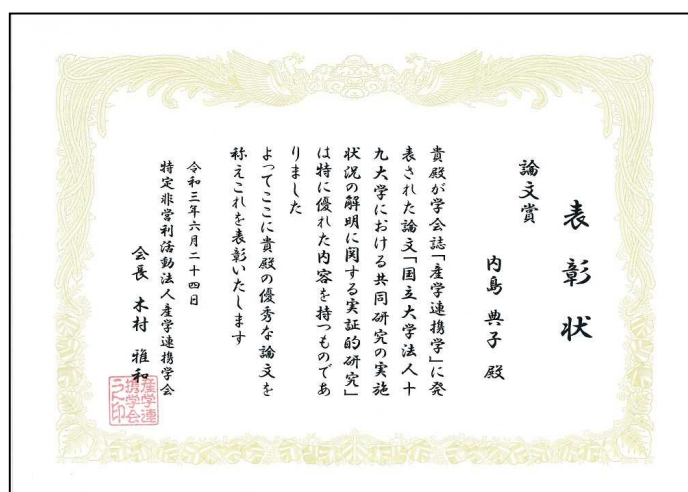 表彰状
論文賞
内島 典子 殿
貴殿が学会誌「産学連携学」に発
表された論文「国立大学法人十
九大学における共同研究の実施
状況の解明に関する実証的研究」
は特に優れた内容を持つものであ
りました
よってここに貴殿の優秀な論文を
称えこれを表彰いたします
令和三年六月二十四日
特定非営利活動法人産学連携学会
会長 木村 雅和
産学連
携学会